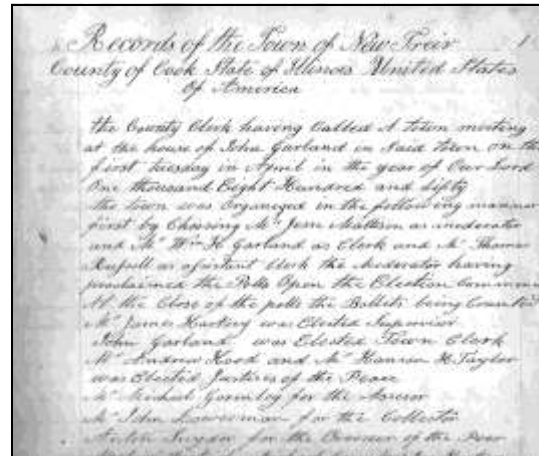 Records of the Town of New Treir 1
County of Cook State of Illinois United States
Of America
the County Clerk having Called A town meeting
at the house of John Garland in Said town on the
first tuesday in April in the year of Our Lord
One thousand Eight Hundred and fifty
the town was Organized in the following manner
first by Choosing Mr Jesse Matteson as moderator
and Mr Wm H Garland as Clerk and Mr Thomas
Russell as assistant Clerk the Moderator having
proclaimed the Polls Open the Election
At the Close of the polls the Ballots being Counted
Mr James Hartrey was Elected Supervisor
John Garland was Elected Town Clerk
Mr Andrew Hood and Mr H Taylor
was Elected Justices of the Peace
Mr Michael Gormley for the
Mr John for the Collector
Anton Snyder for the Overseer of the Poor